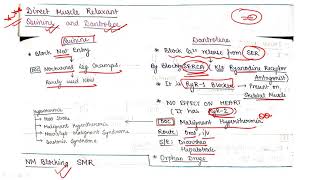 Direct Muscle Relaxant
Quinine and Dantrolene
Quinine
Block Na+ Entry
Nocturnal Leg Cramps
Rarely used Now
Hyperthermia
Heat Stroke
Malignant Hyperthermia
Neuroleptic Malignant Syndrome
Serotonin Syndrome
NM Blocking SMR
Dantrolene
Block Ca+2 release from SER
By Blocking SERCA K/a Ryanodine Receptor
Antagonist
It is RyR-1 Blocker → Present on
Skeletal Muscle
NO EFFECT ON HEART
(It has RyR-2)
DOC Malignant Hyperthermia
Route: Oral, i/v
S/E: Diarrhea
Hepatotoxic
Orphan Drugs